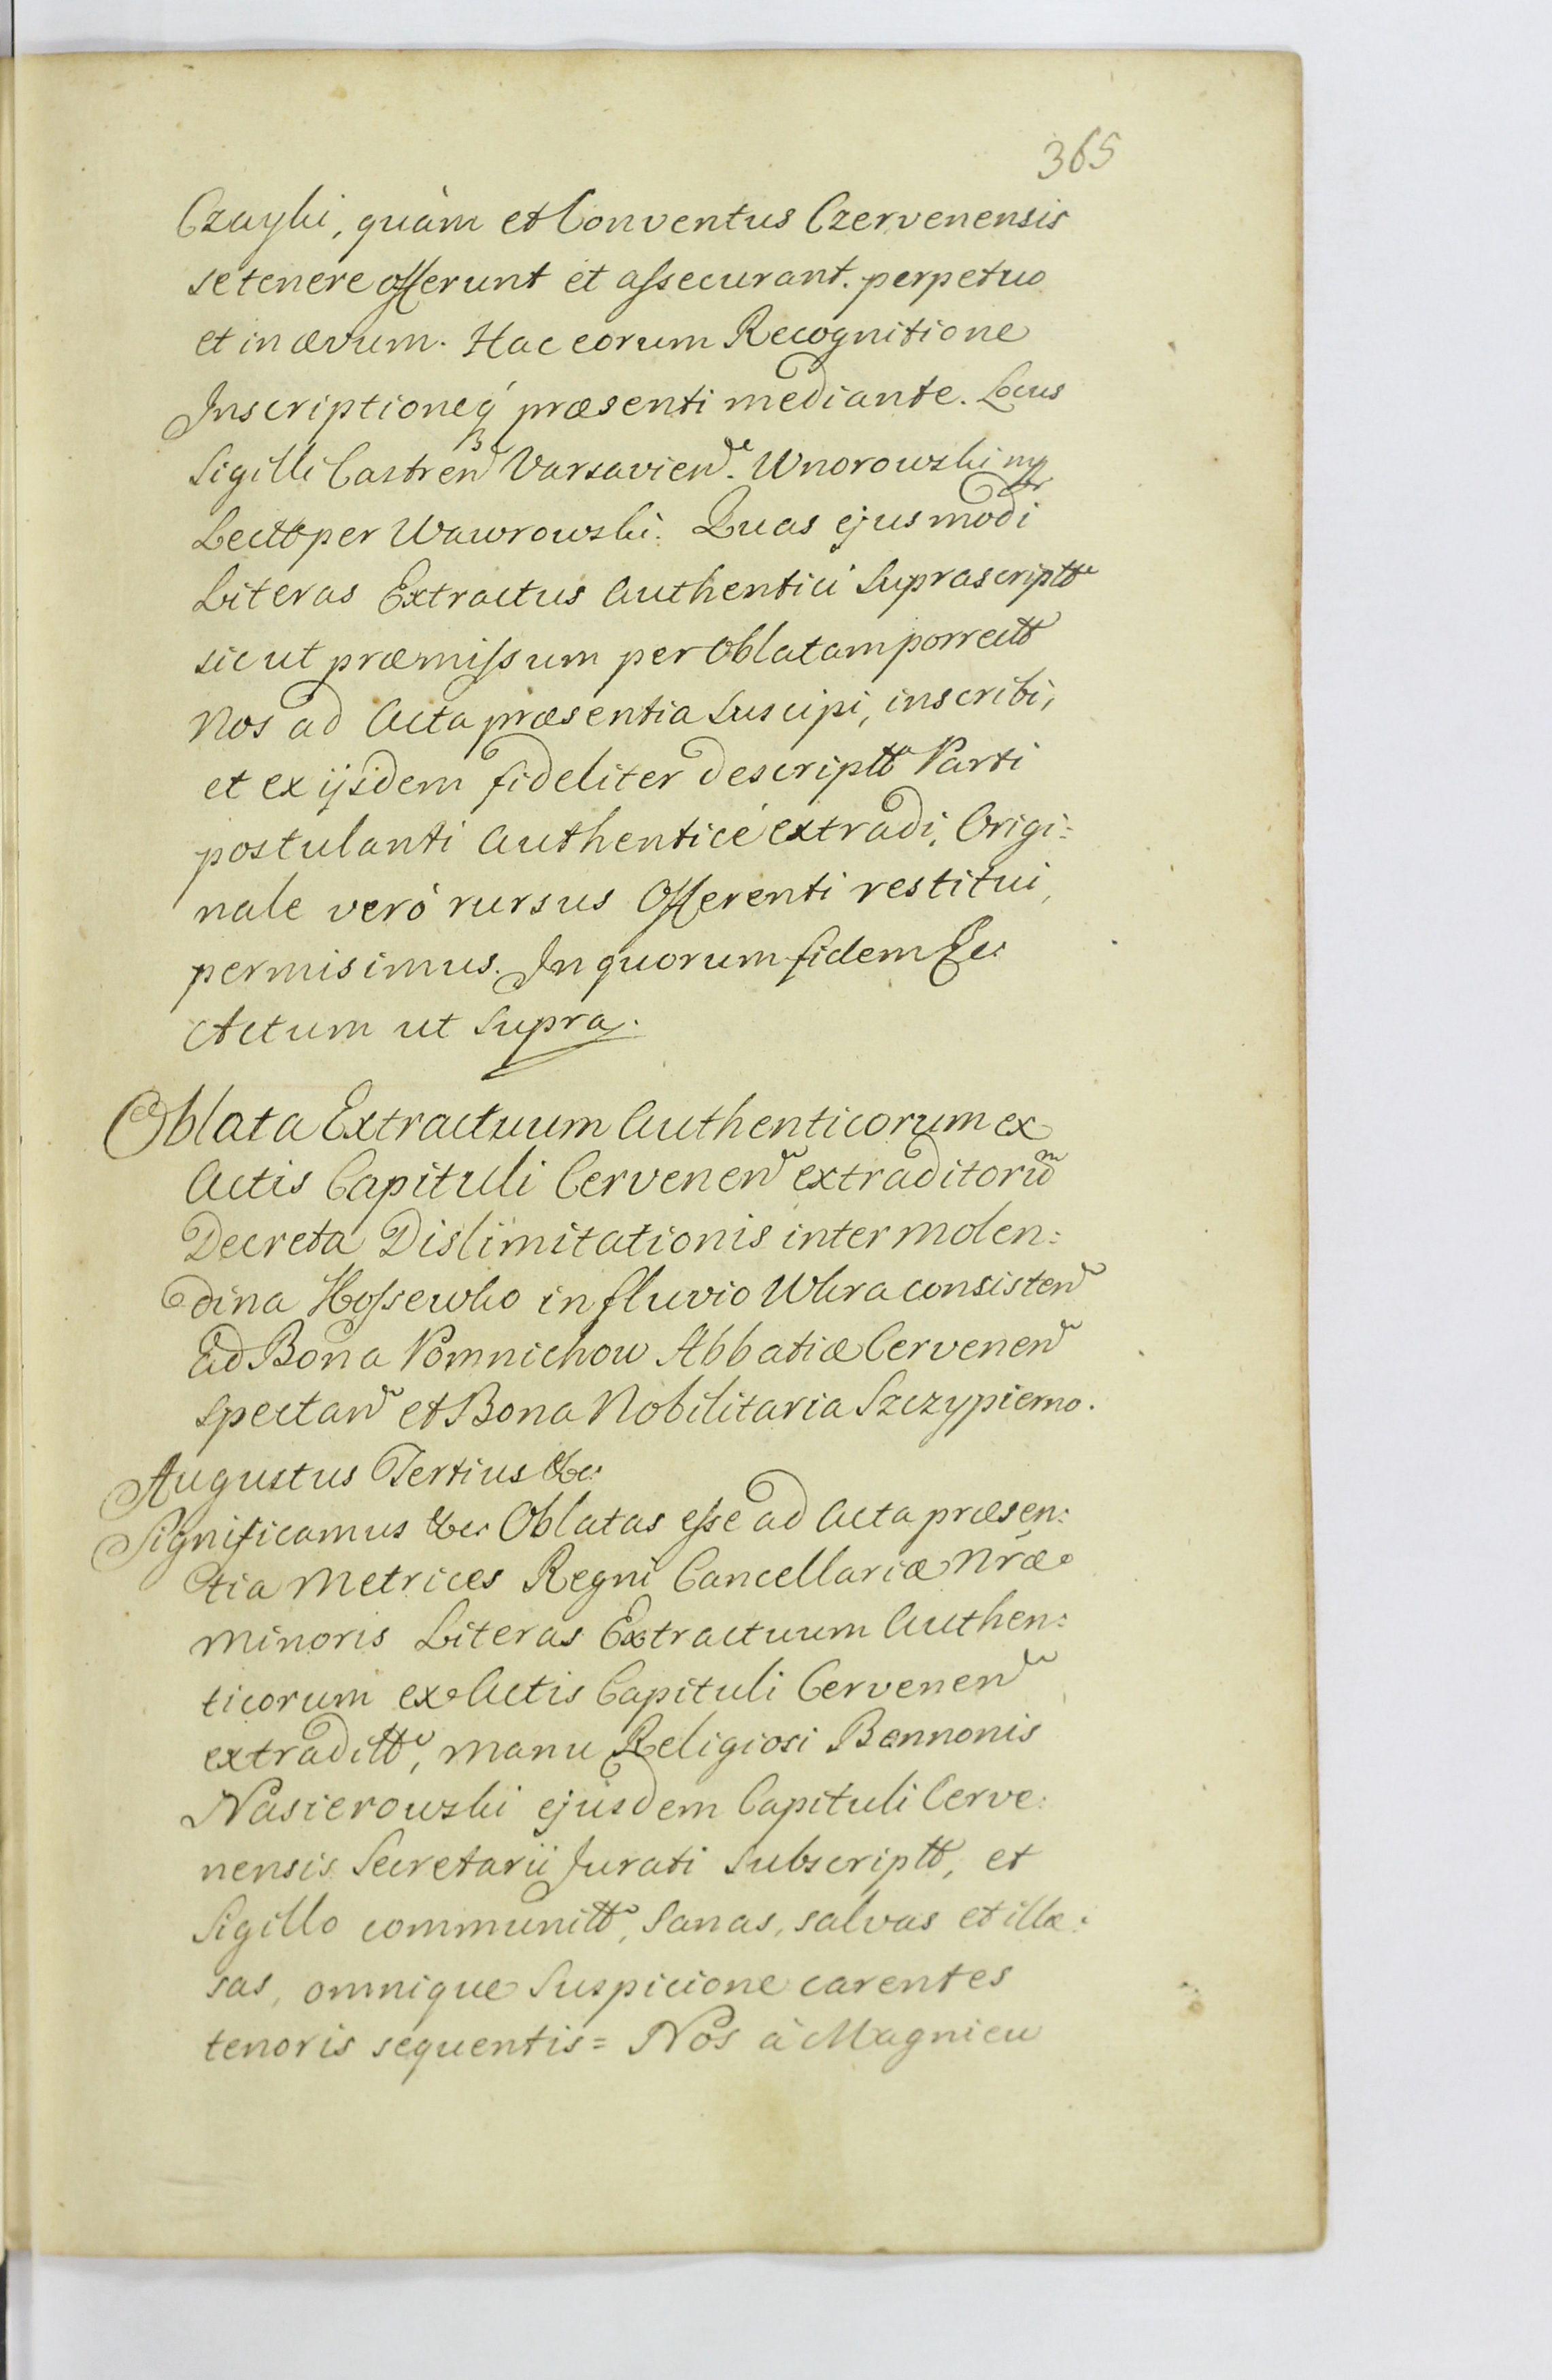 365
Czayki, quàm et Conventus Czervenensis
se tenere offerunt et assecurant. perpetuo
et in ævum. Hac eorum Recognitione
Inscriptioneq́ præsenti mediante. Locus
Sigilli Castren Varsavien. Wnorowski mp
Lectt per Wawrowski. Quas ejusmodi
Literas Extractus Authentici Suprascriptt
sicut præmissum per Oblatam porrectt
Nos ad Acta præsentia Suscipi, inscribi,
et ex ijsdem fideliter descriptt Parti
postulanti Authenticè extradi, Origi=
nale verò rursus Offerenti restitui,
permisimus. In quorum fidem &c.
Actum ut Supra.
Oblata Extractuum Authenticorum ex
Actis Capituli Cervenen extraditorum
Decreta Dislimitationis inter Molen:
dina Kossewko in fluvio Wkra consisten
ad Bona Pomnichow Abbatiæ Cervenen
spectan et Bona Nobilitaria Szczypierno.
Augustus Tertius &c.
Significamus &c. Oblatas esse ad Acta præsen:
tia Metrices Regni Cancellariæ Nræ
Minoris Literas Extractuum Authen:
ticorum ex Actis Capituli Cervenen
extraditt, manu Religiosi Bennonis
Nasierowski ejusdem Capituli Cerve:
nensis Secretarii Jurati Subscriptt, et
Sigillo communitt, Sanas, salvas et illæ:
sas, omnique Suspicione carentes
tenoris sequentis = Nos à Magnicu